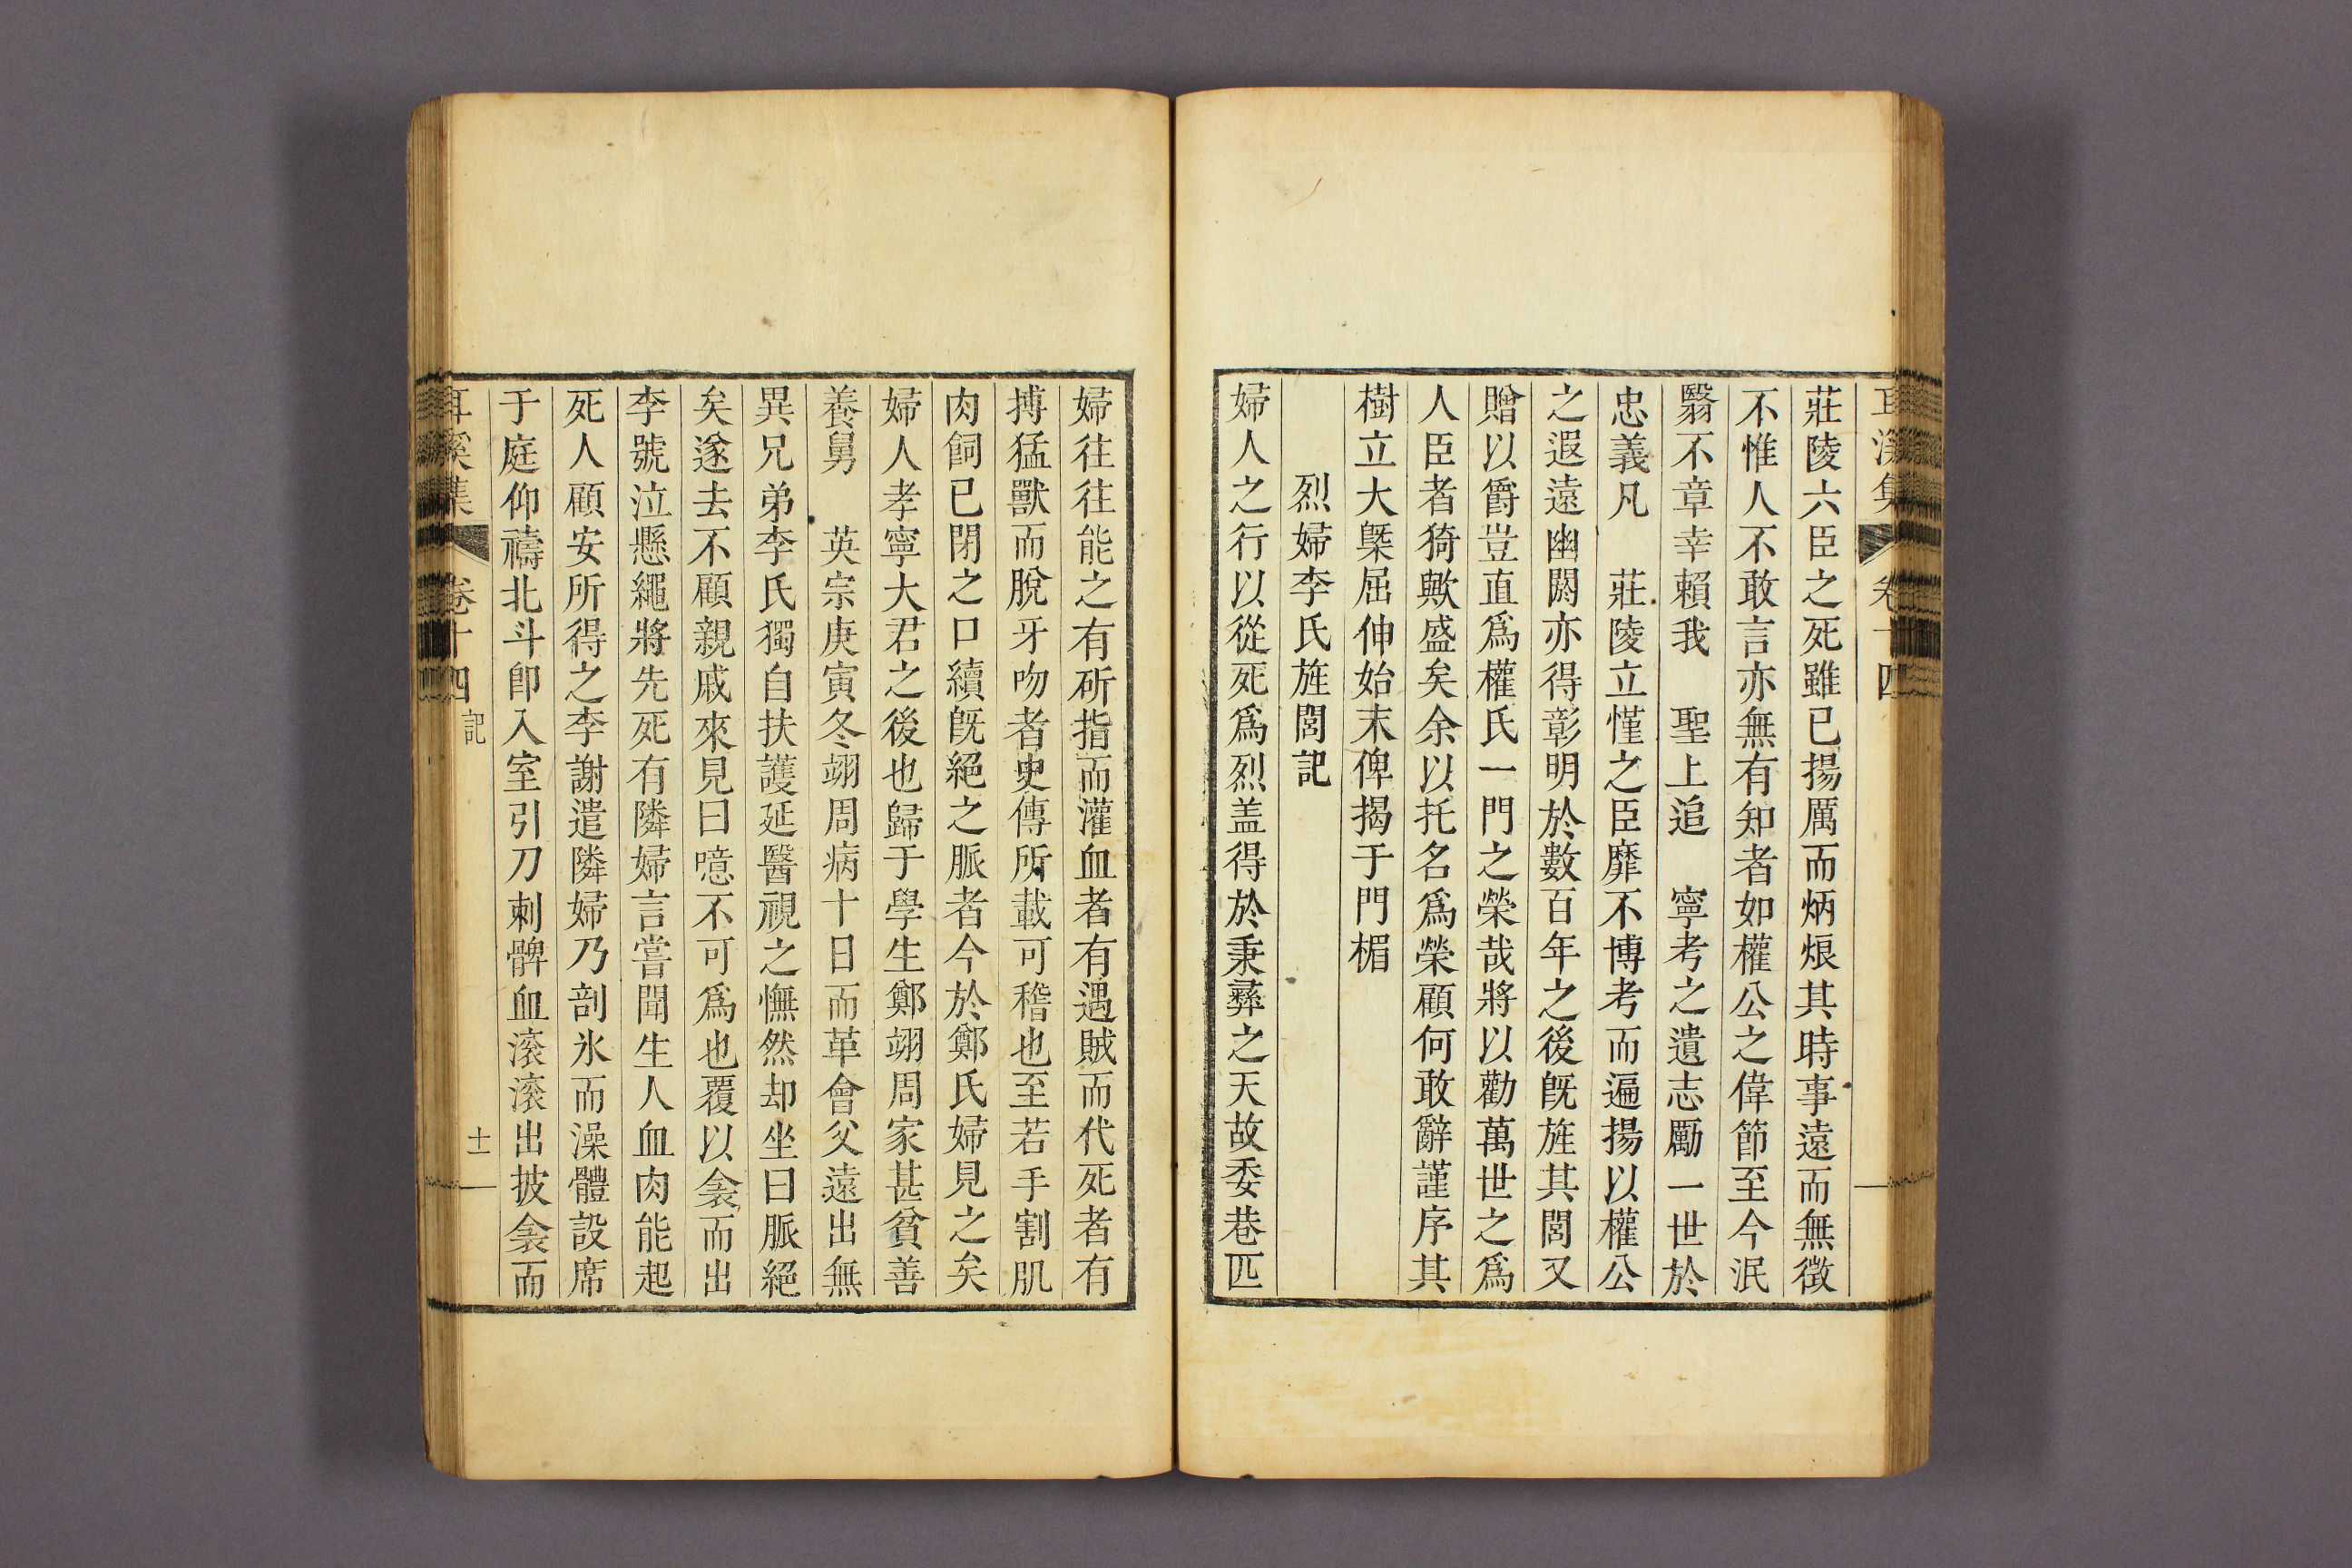 耳溪集 卷十四
莊陵六臣之死雖已揚厲而炳烺其時事遠而無徵
不惟人不敢言亦無有知者如權公之偉節至今泯
翳不章幸賴我 聖上追 寧考之遺志勵一世於
忠義凡 莊陵立慬之臣靡不博考而遍揚以權公
之遐遠幽閼亦得彰明於數百年之後旣旌其閭又
贈以爵豈直爲權氏一門之榮哉將以勸萬世之爲
人臣者猗歟盛矣余以托名爲榮顧何敢辭謹序其
樹立大槩屈伸始末俾揭于門楣
烈婦李氏旌閭記
婦人之行以從死爲烈盖得於秉彝之天故委巷匹
婦往往能之有斫指而灌血者有遇賊而代死者有
搏猛獸而脫牙吻者史傳所載可稽也至若手割肌
肉飼已閉之口續旣絕之脈者今於鄭氏婦見之矣
婦人孝寧大君之後也歸于學生鄭翊周家甚貧善
養舅 英宗庚寅冬翊周病十日而革會父遠出無
異兄弟李氏獨自扶護延醫視之憮然却坐曰脈絕
矣遂去不顧親戚來見曰噫不可爲也覆以衾而出
李號泣懸繩將先死有隣婦言嘗聞生人血肉能起
死人顧安所得之李謝遣隣婦乃剖氷而澡體設席
于庭仰禱北斗卽入室引刀刺髀血滚滚出披衾而
耳溪集 卷十四 記 十一